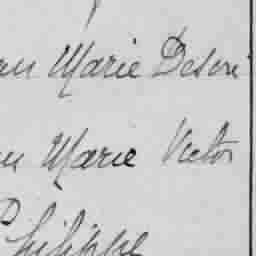 Marie Desiré
Marie Victor
Philippe